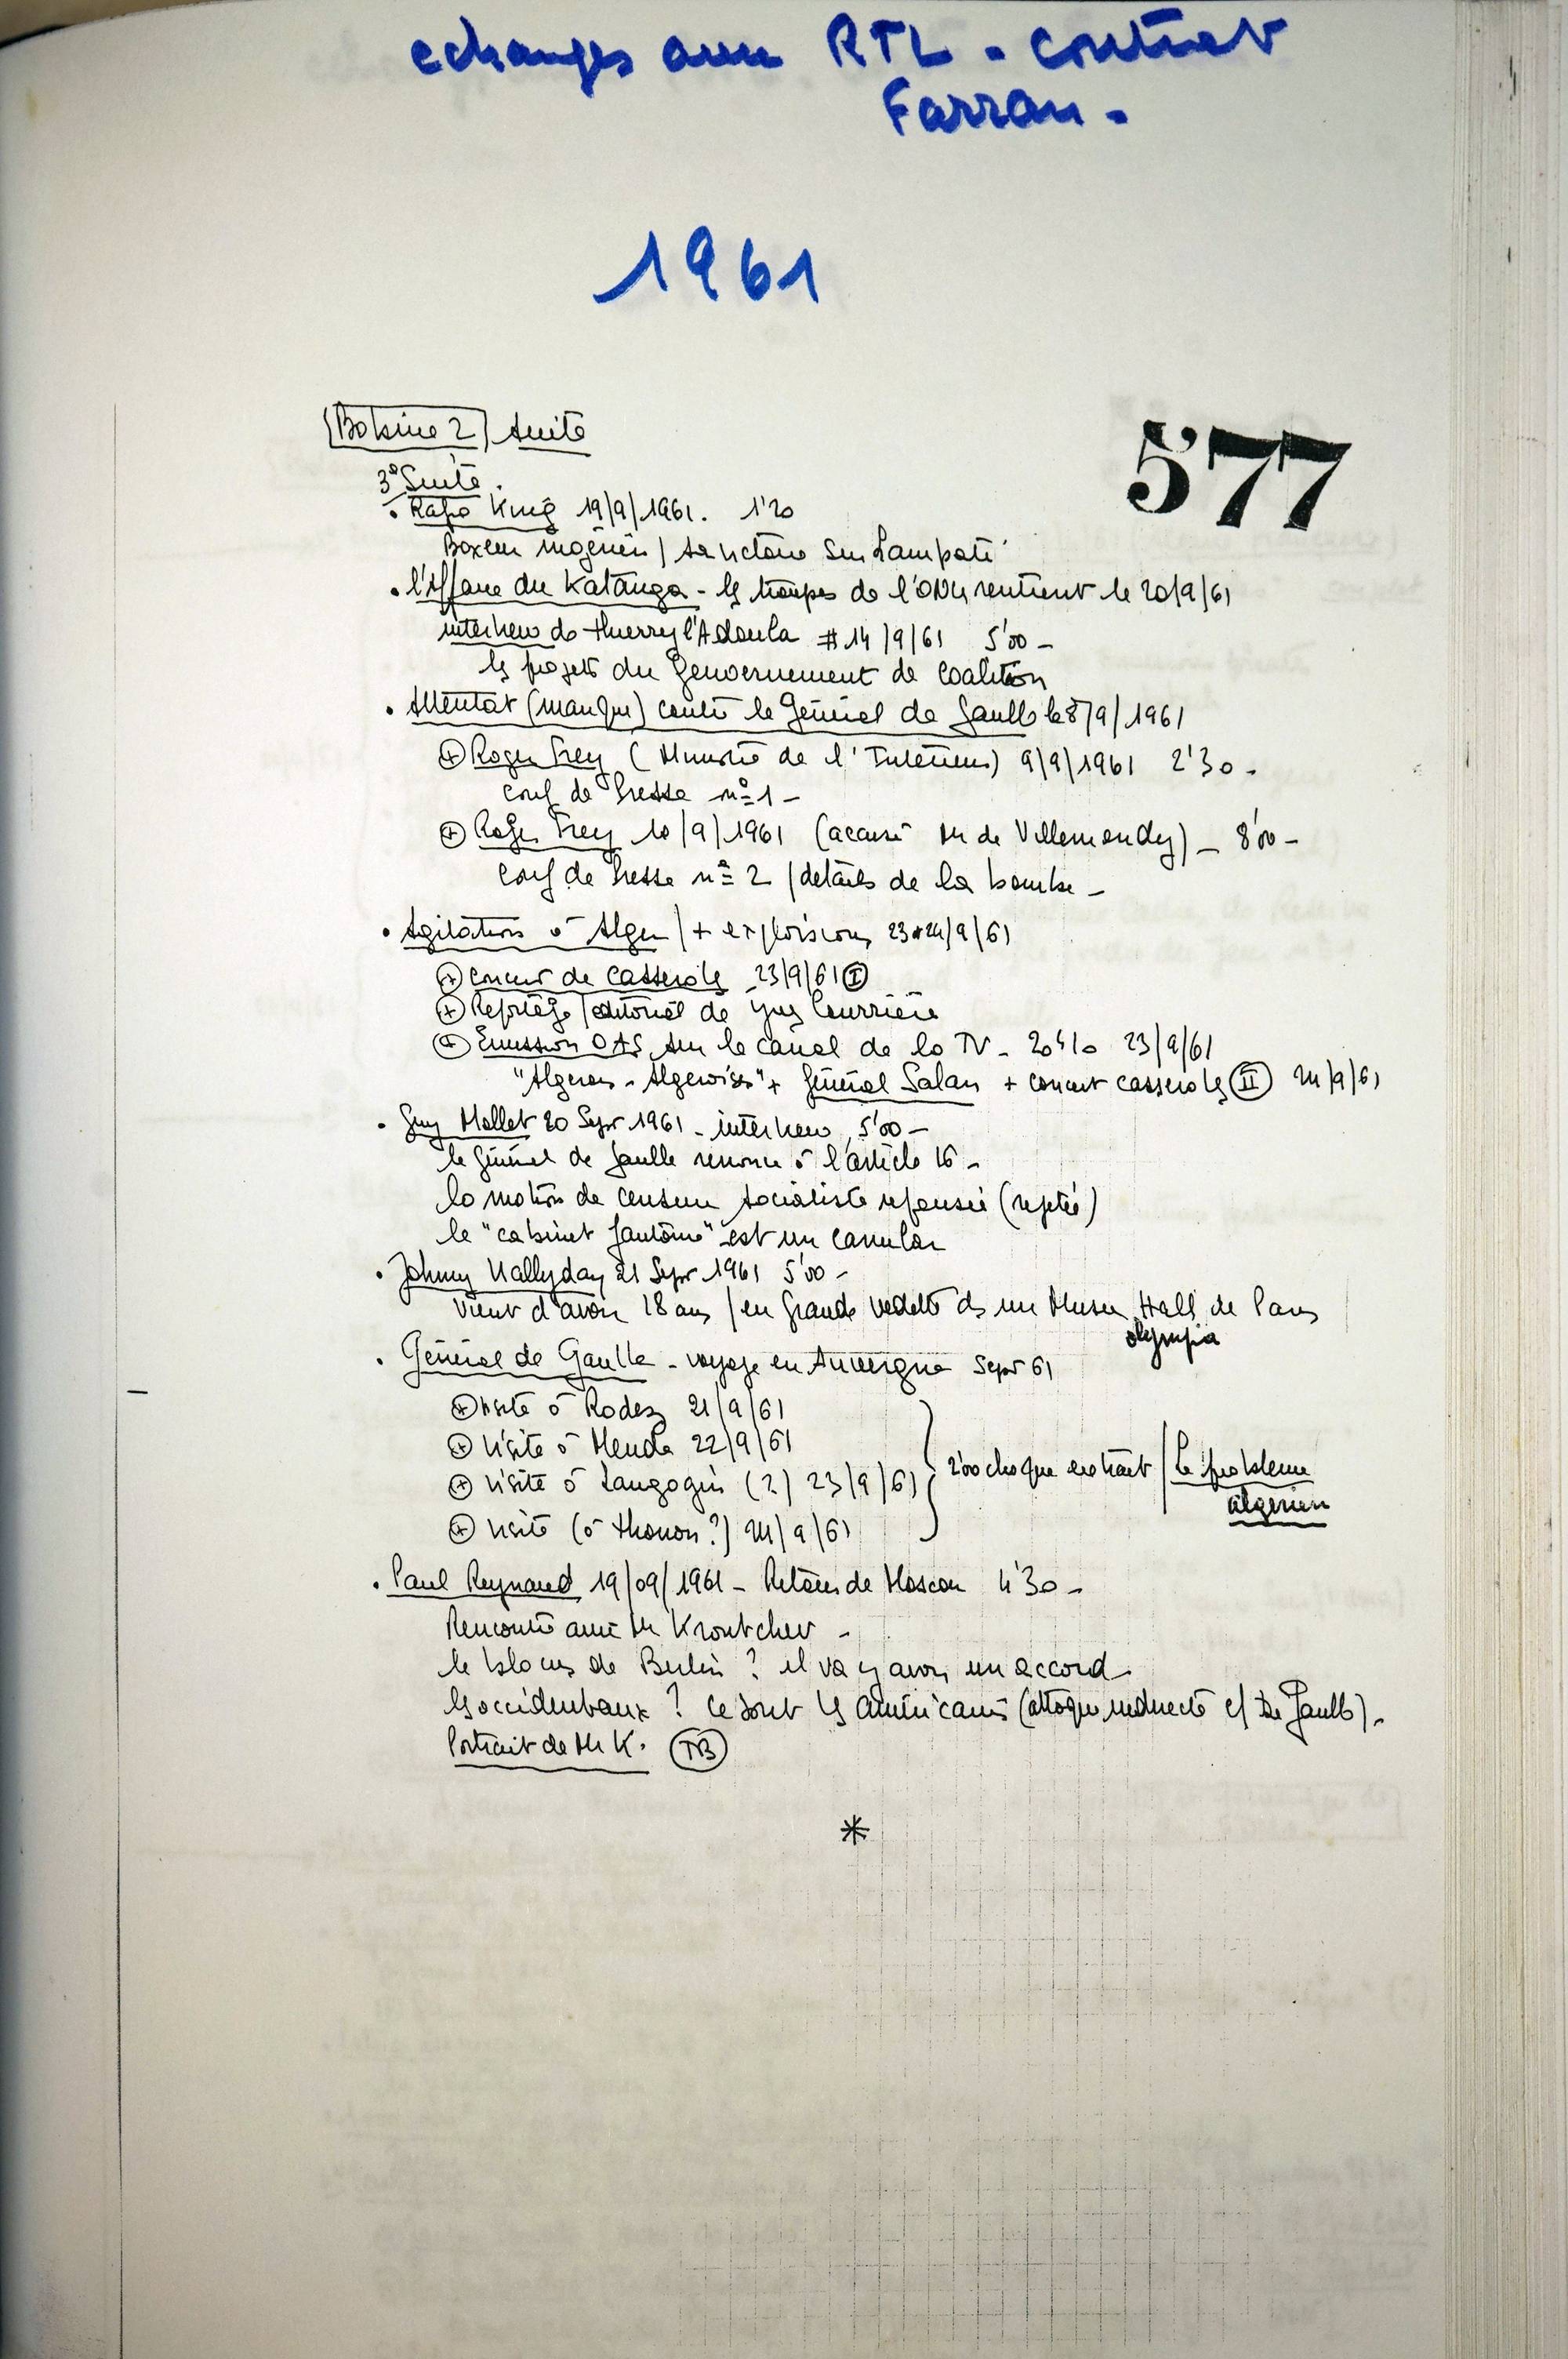 echanges avec RTL - contrat
Farran.
1961
577
Bobine 2 / suite
3° Suite.
. Rafio King 19/9/1961. 1'20
Boxeur nigérien / sa victoire sur Lamperti
. l'Affaire du Katanga - les troupes de l'ONU rentrent le 20/9/61
interview de thierry l'Adoula # 14/9/61 5'00 -
les projets du Gouvernement de Coalition
. Attentat (manqué) contre le Général de Gaulle le 8/9/1961
+ Roger Frey (Ministre de l'Intérieur) 9/9/1961 2'30 -
conf de Presse n° 1 -
+ Roger Frey 10/9/1961 (accusé Mr de Villemandy) - 8'00 -
conf de Presse n° 2 / détails de la bombe -
. Agitation à Alger / + explosions 23 + 24/9/61
+ Concert de Casseroles 23/9/61 I
+ Reportage / éditorial de Yves Courrière
+ Emission OAS sur le canal de la TV - 20h10 23/9/61
"Algérois - Algéroises" + Général Salan + concert casseroles II 24/9/61
. Guy Mollet 20 Sept 1961 - interview 5'00 -
le Général de Gaulle renonce à l'article 16 -
la motion de censure socialiste repoussée (rejetée)
le "cabinet fantôme" est un canular
. Johnny Hallyday 21 Sept 1961 5'00 -
vient d'avoir 18 ans / en Grande vedette ds un Music Hall de Paris
olympia
. Général de Gaulle - voyage en Auvergne Sept 61
+ visite à Rodez 21/9/61
+ visite à Mende 22/9/61
+ visite à Langogne (2) 23/9/61
+ visite (à thonon?) 24/9/61
2'00 chaque extrait / Le problème
algérien
. Paul Reynaud 19/09/1961 - Retour de Moscou 4'30 -
Rencontre avec Mr Kroutchev -
le blocus de Berlin ? il va y avoir un accord -
les occidentaux ? ce sont les américains (attaque indirecte c/ De Gaulle) -
Portrait de Mr K. TB
*